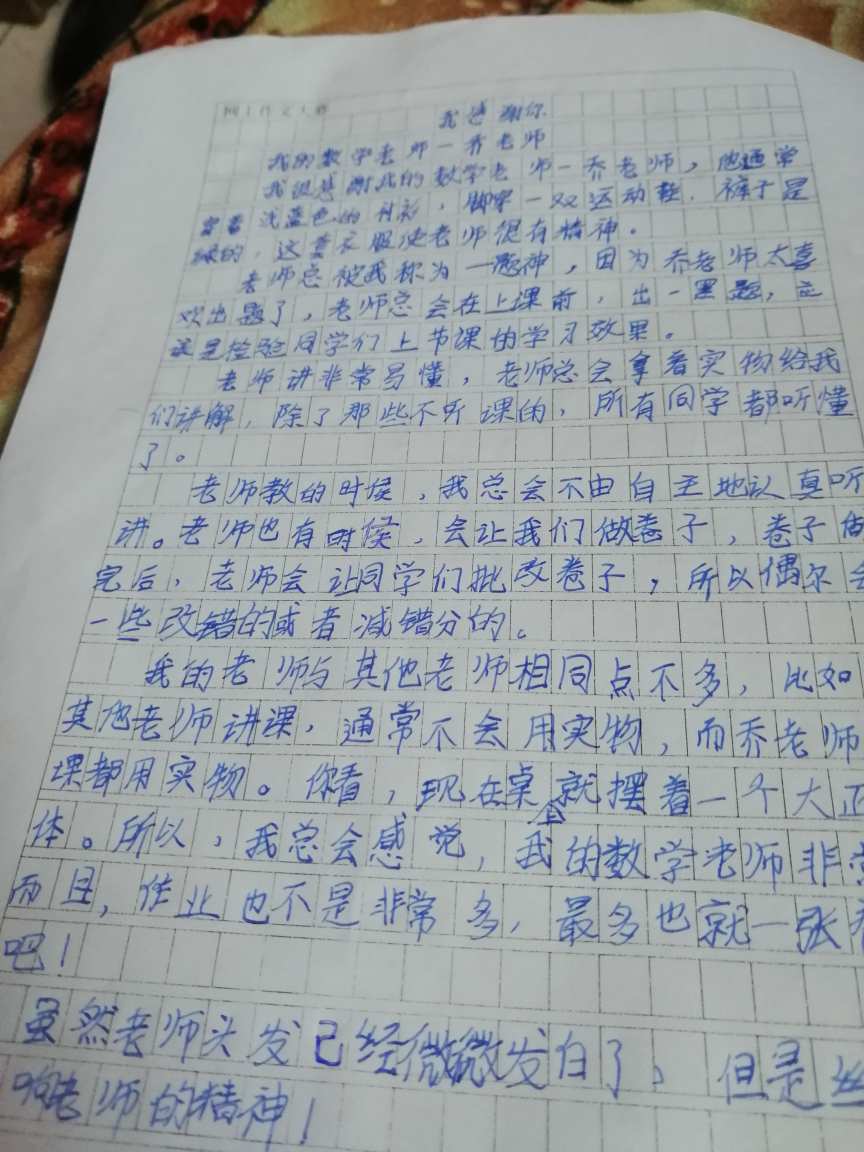 我感谢你
我的数学老师一乔老师
我很感谢我的数学老师一乔老师，他通常
穿着浅蓝色的衬衫，脚穿一双运动鞋，裤子是
绿的，这套衣服使老师很有精神。
老师总被我称为一题神，因为乔老师太喜
欢出题了，老师总会在上课前，出一黑题，应
该是检验同学们上节课的学习效果。
老师讲非常易懂，老师总会拿着实物给我
们讲解，除了那些不听课的，所有同学都听懂
了。
老师教的时侯，我总会不由自主地认真听
讲。老师也有时侯，会让我们做卷子，卷子做
完后，老师会让同学们批改卷子，所以偶尔会
一些改错的或者减错分的。
我的老师与其他老师相同点不多，比如
其他老师讲课，通常不会用实物，而乔老师
课都用实物。你看，现在桌上就摆着一个大正
体。所以，我总会感觉，我的数学老师非常
而且，作业也不是非常多，最多也就一张
吧！
虽然老师头发已经微微发白了，但是丝
响老师的精神！